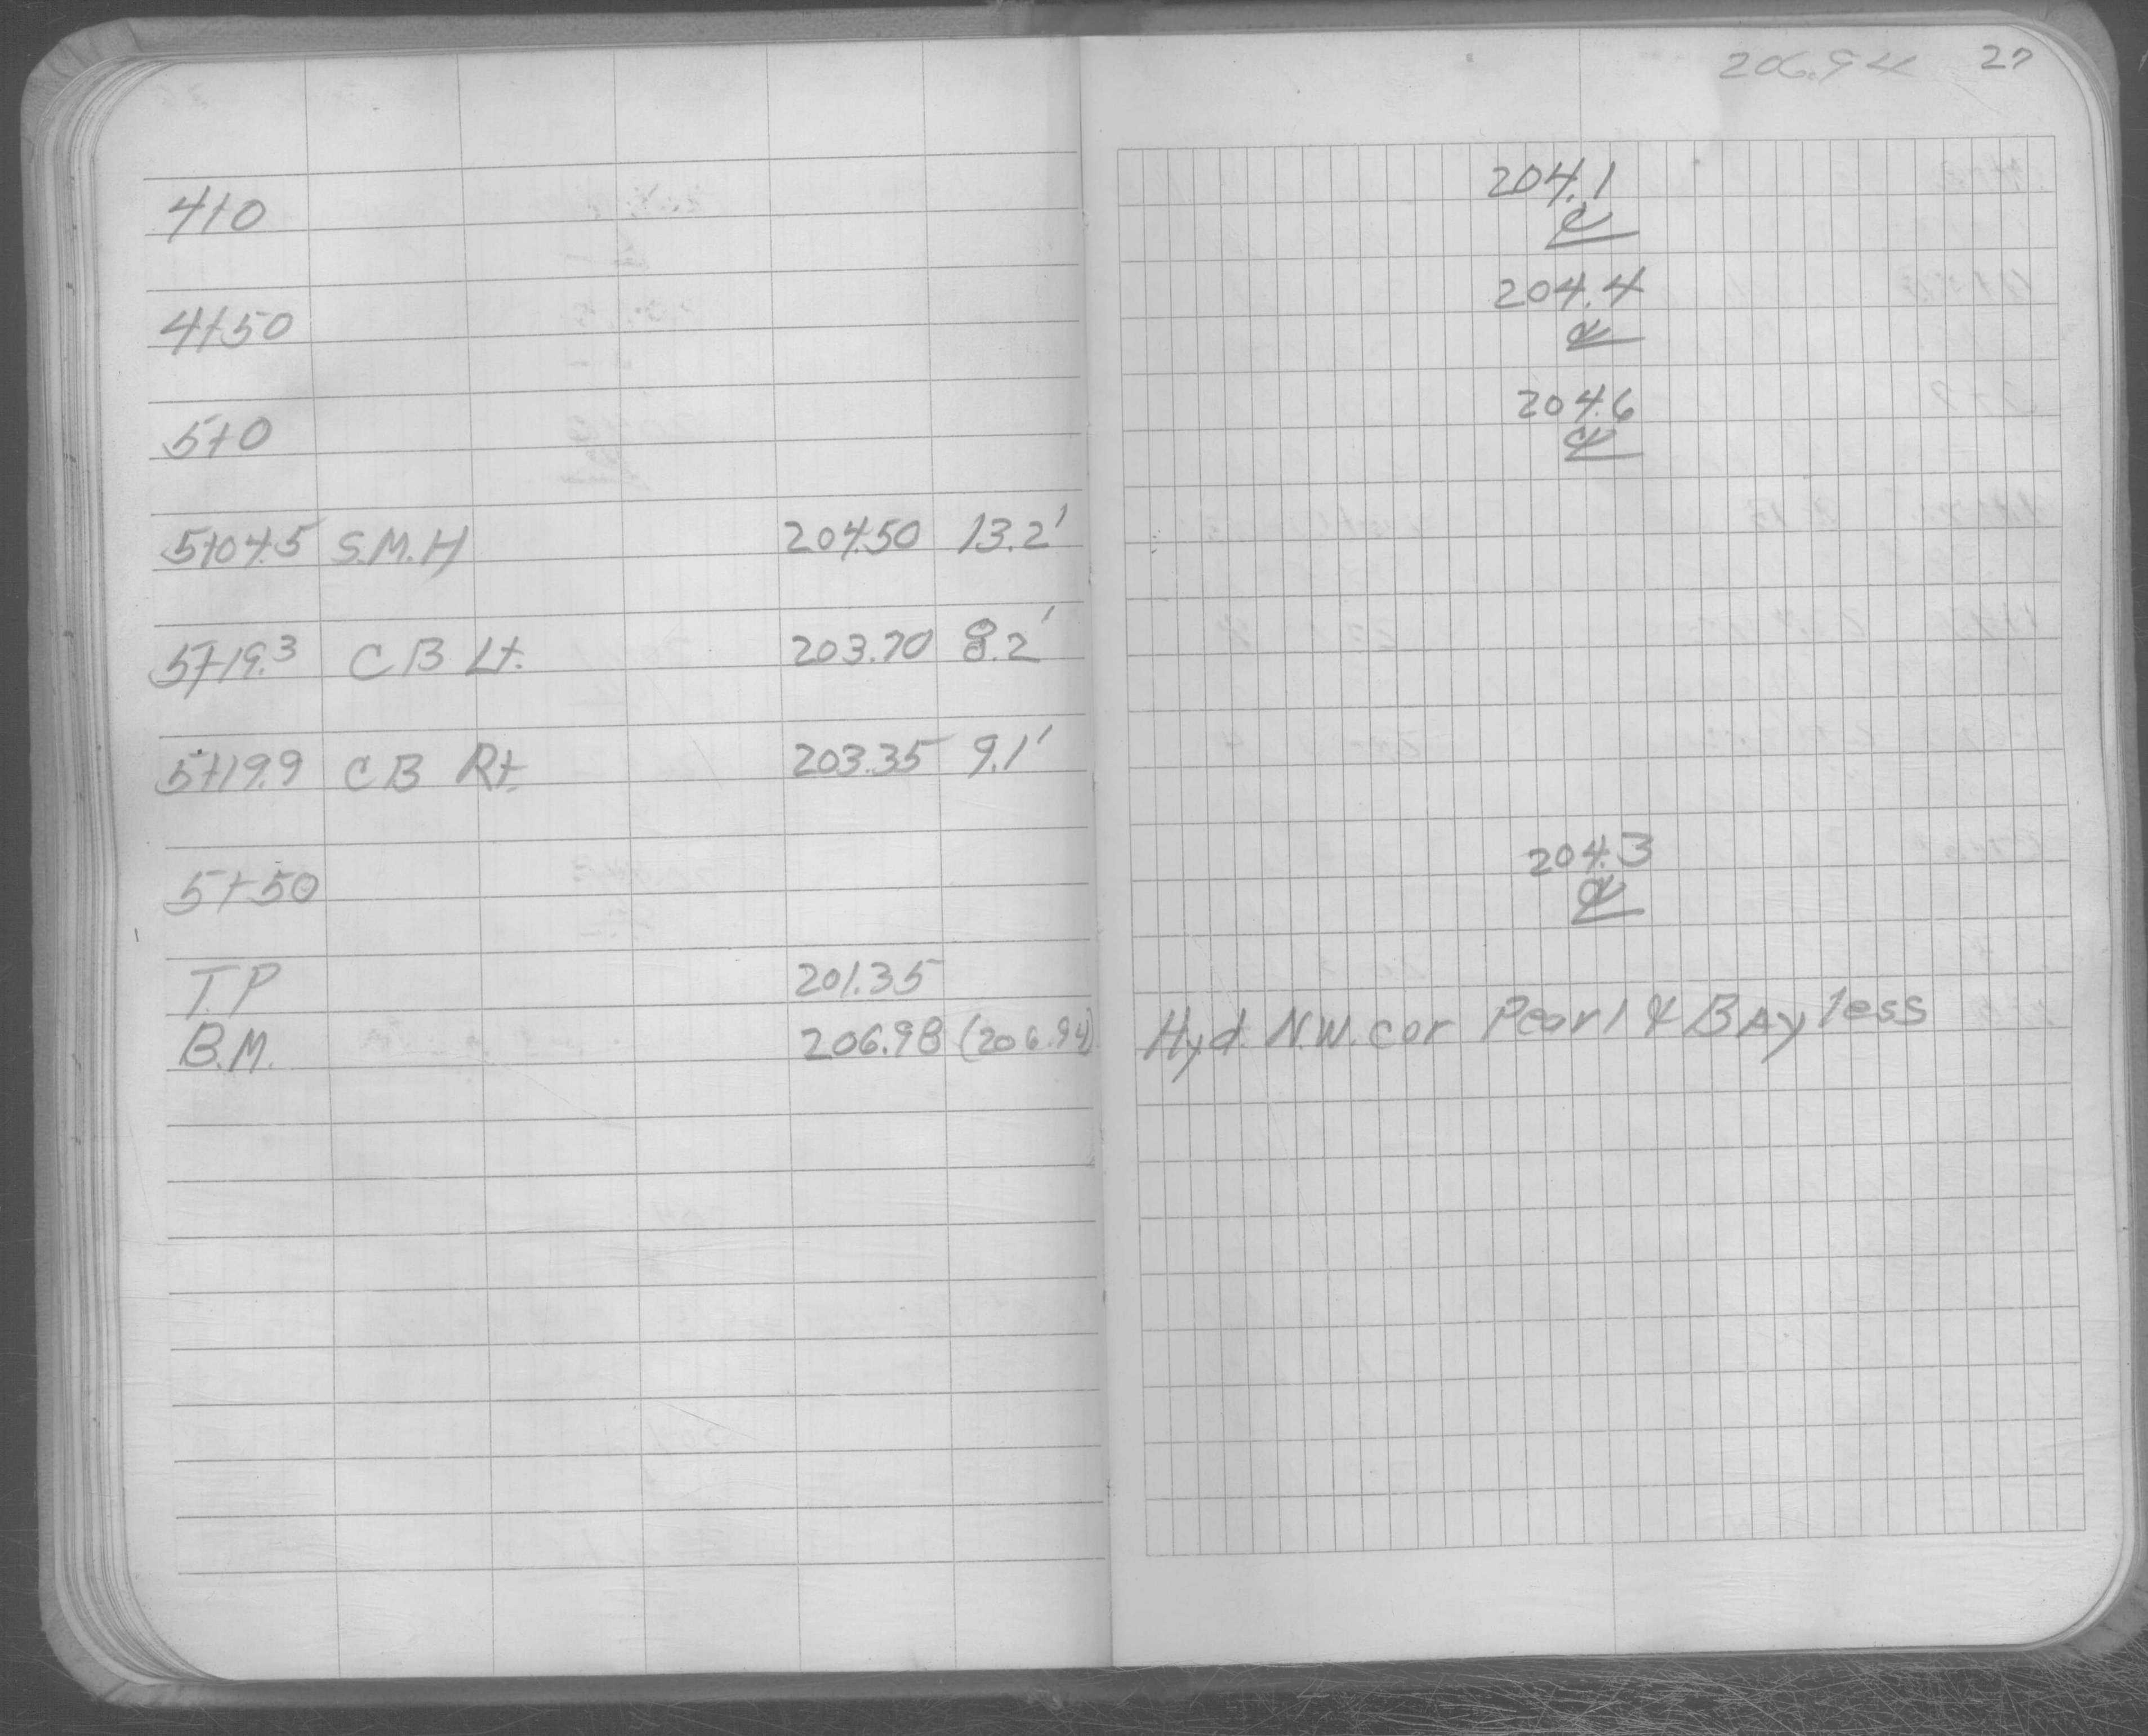 206.94 27
4+0 204.1
℄
4+50 204.4
℄
5+0 204.6
℄
5+04.5 S.M.H 204.50 13.2'
5+19.3 C B Lt. 203.70 8.2'
5+19.9 C B Rt. 203.35 9.1'
5+50 204.3
℄
T.P 201.35
B.M. 206.98 (206.94) Hyd. N.W. cor Pearl & BAyless